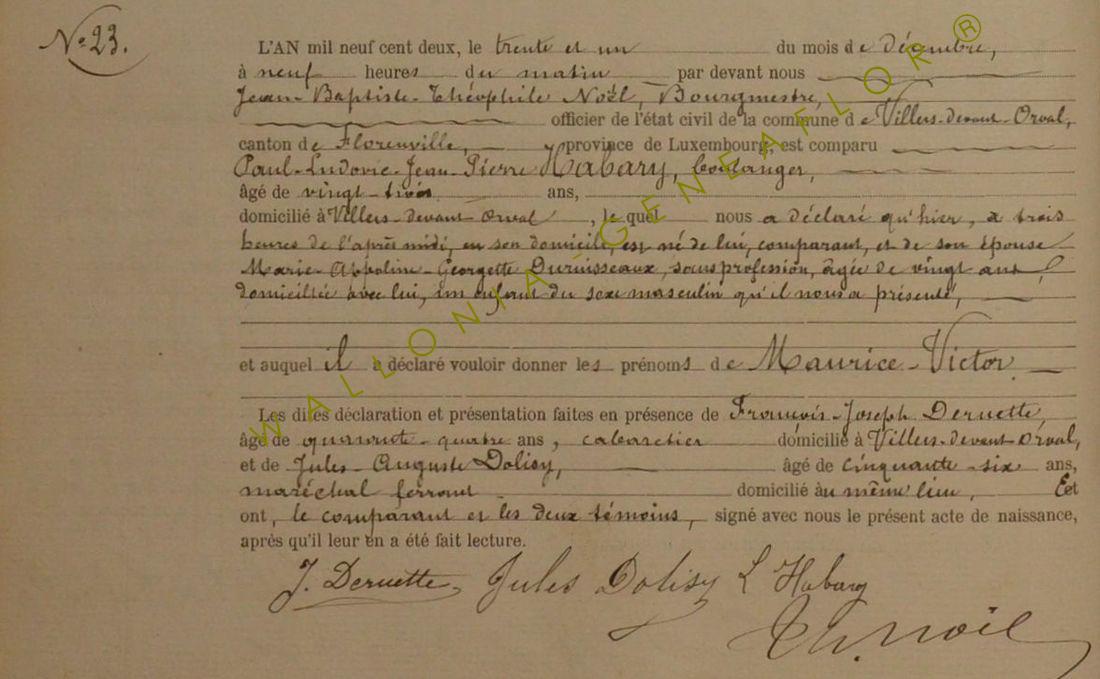 No 23.
L'AN mil neuf cent deux, le trente et un du mois de décembre,
à neuf heures du matin par devant nous
Jean-Baptiste-Théophile Noël, Bourgmestre,
officier de l'état civil de la commune de Villers-devant-Orval,
canton de Florenville, province de Luxembourg, est comparu
Paul-Ludovic-Jean-Pierre Habary, boulanger,
âgé de vingt-trois ans,
domicilié à Villers-devant Orval, lequel nous a déclaré qu'hier, à trois
heures de l'après midi, en son domicile, est né de lui, comparant, et de son épouse
Marie-Appoline-Georgette Duruisseaux, sans profession, âgée de vingt ans,
domiciliée avec lui, un enfant du sexe masculin qu'il nous a présenté,
et auquel il a déclaré vouloir donner les prénoms de Maurice-Victor
Les dites déclaration et présentation faites en présence de François-Joseph Deruette,
âgé de quarante-quatre ans, cabaretier domicilié à Villers-devant Orval,
et de Jules-Auguste Dolisy, âgé de cinquante-six ans,
maréchal ferrant domicilié au même lieu, Et
ont, le comparant et les deux témoins, signé avec nous le présent acte de naissance,
après qu'il leur en a été fait lecture.
J. Deruette Jules Dolisy L Habary
Th. Noël
WALLONIA-GENEAFLOR ®